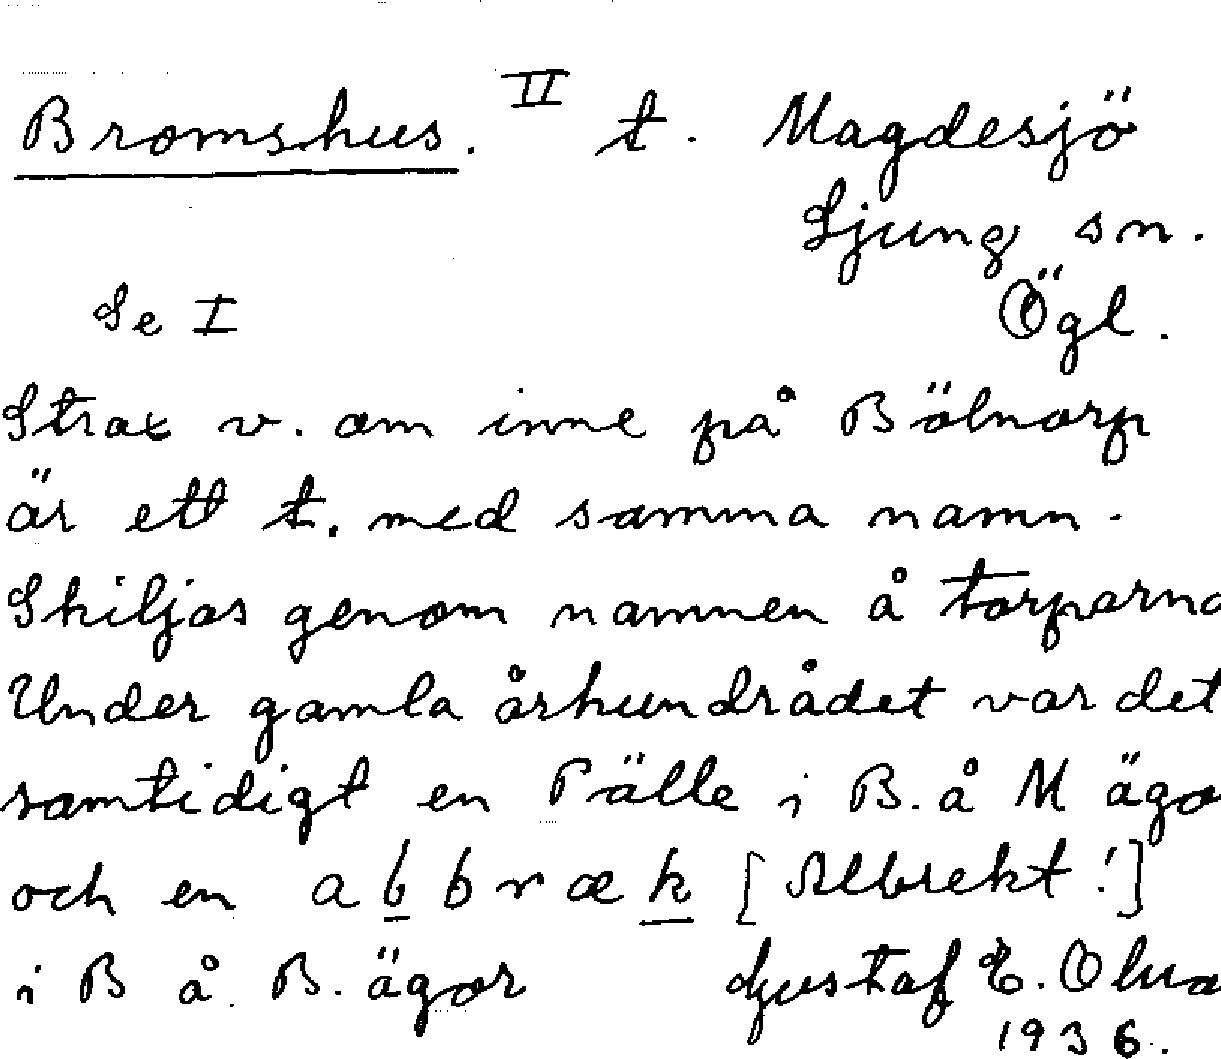 Bromshus. II t. Magdesjö
Ljung sn.
Se I Ögl.
Strax v. om inne på Bölnorp
är ett t. med samma namn.
Skiljas genom namnen å torparna
Under gamla århundrådet var det
samtidigt en Pälle i B. å M ägor
och en abbræk [Albrekt!]
i B å. B. ägor Gustaf E. Olua
1936.